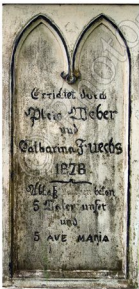 Errichtet durch
Weber
und
Catharina Fuechs
1878
5 Vater unser
und
5 AVE MARIA